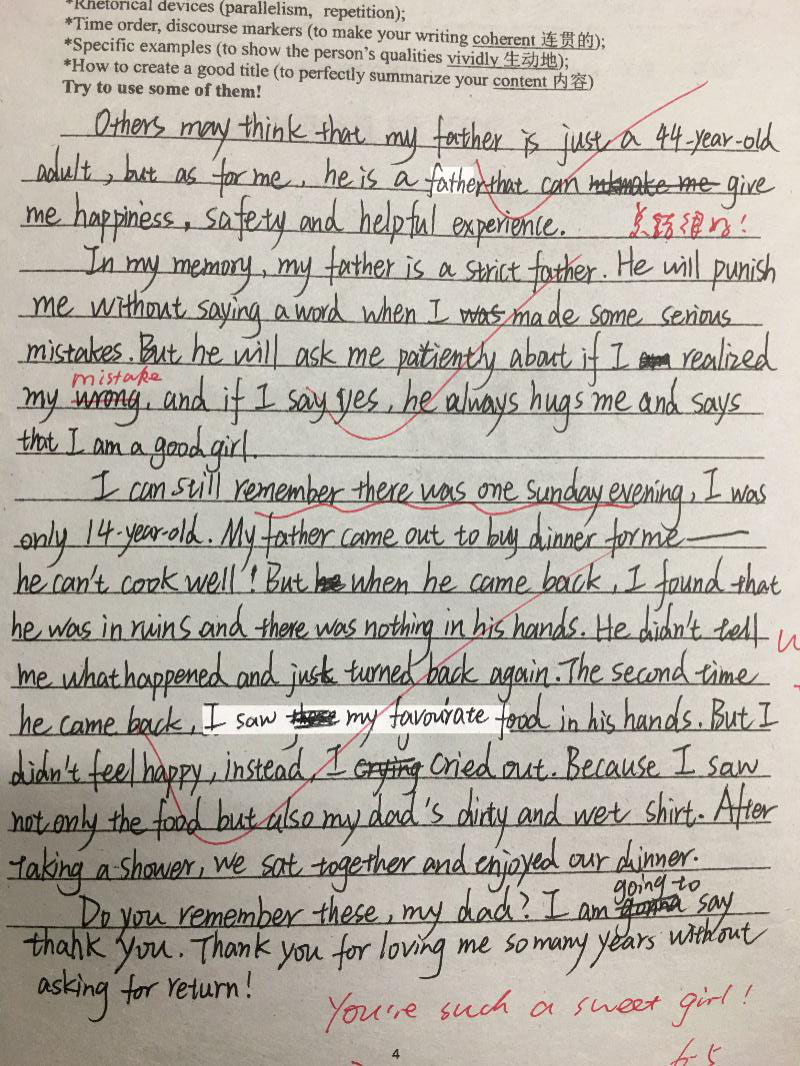 *Rhetorical devices (parallelism, repetition);
*Time order, discourse markers (to make your writing coherent 连贯的);
*Specific examples (to show the person's qualities vividly 生动地);
*How to create a good title (to perfectly summarize your content 内容)
Try to use some of them!
Others may think that my father is just a 44-year-old
adult, but as for me, he is a father that can make me give
me happiness, safety and helpful experience. 点题很好!
In my memory, my father is a strict father. He will punish
me without saying a word when I was made some serious
mistakes. But he will ask me patiently about if I am realized
mistake
my wrong, and if I say yes, he always hugs me and says
that I am a good girl.
I can still remember there was one sunday evening, I was
only 14-year-old. My father came out to buy dinner for me——
he can't cook well! But he when he came back, I found that
he was in ruins and there was nothing in his hands. He didn't tell
me what happened and just turned back again. The second time
he came back, I saw these my favourate food in his hands. But I
didn't feel happy, instead, I crying cried out. Because I saw
not only the food but also my dad's dirty and wet shirt. After
taking a shower, we sat together and enjoyed our dinner.
going to
Do you remember these, my dad? I am gonna say
thank you. Thank you for loving me so many years without
asking for return!
You're such a sweet girl!
4